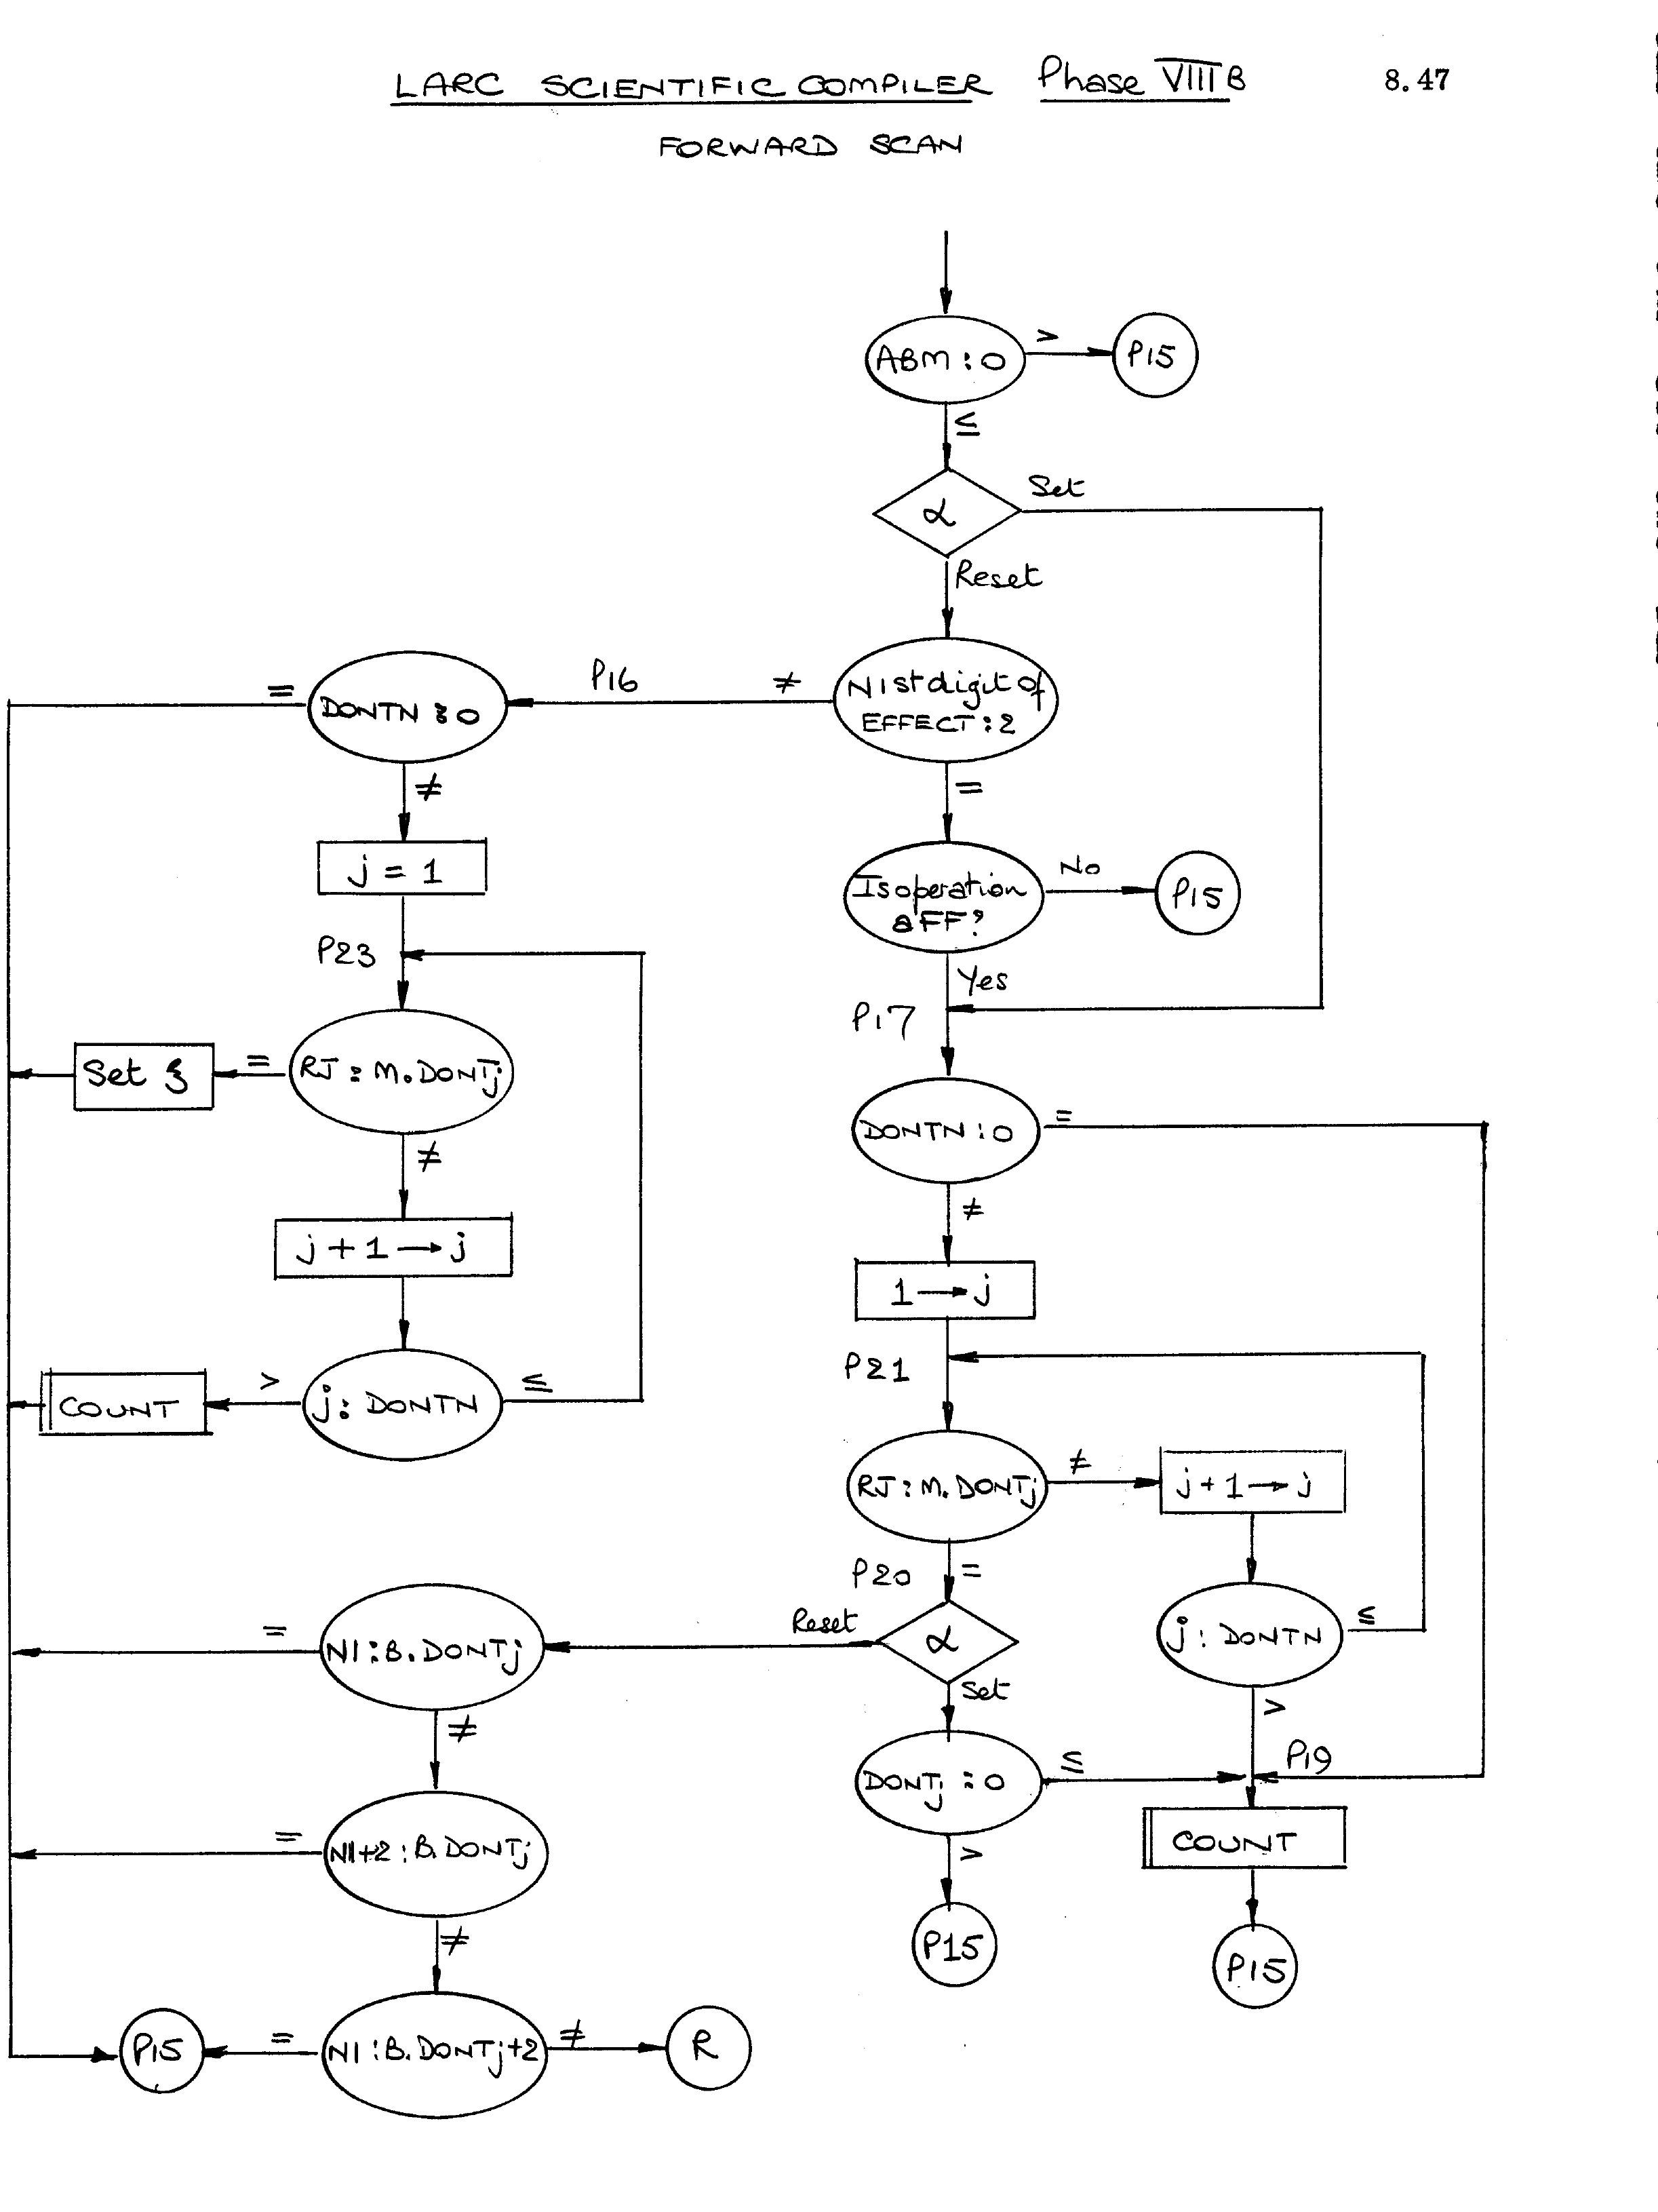 LARC SCIENTIFIC COMPILER Phase VIII B 8.47
FORWARD SCAN
ABM : 0
>
P15
≤
α
Set
Reset
N1st digit of
EFFECT : 2
≠
P16
DONTN : 0
=
≠
j = 1
P23
RJ : M.DONTj
=
Set ξ
≠
j + 1 → j
j : DONTN
≤
>
COUNT
=
Is operation
a FF?
No
P15
Yes
P17
DONTN : 0
=
≠
1 → j
P21
RJ : M.DONTj
≠
j + 1 → j
j : DONTN
≤
>
P19
COUNT
P15
P20
=
α
Reset
Set
DONTj : 0
≤
>
P15
N1 : B.DONTj
=
≠
N1+2 : B.DONTj
=
≠
N1 : B.DONTj+2
=
P15
≠
R